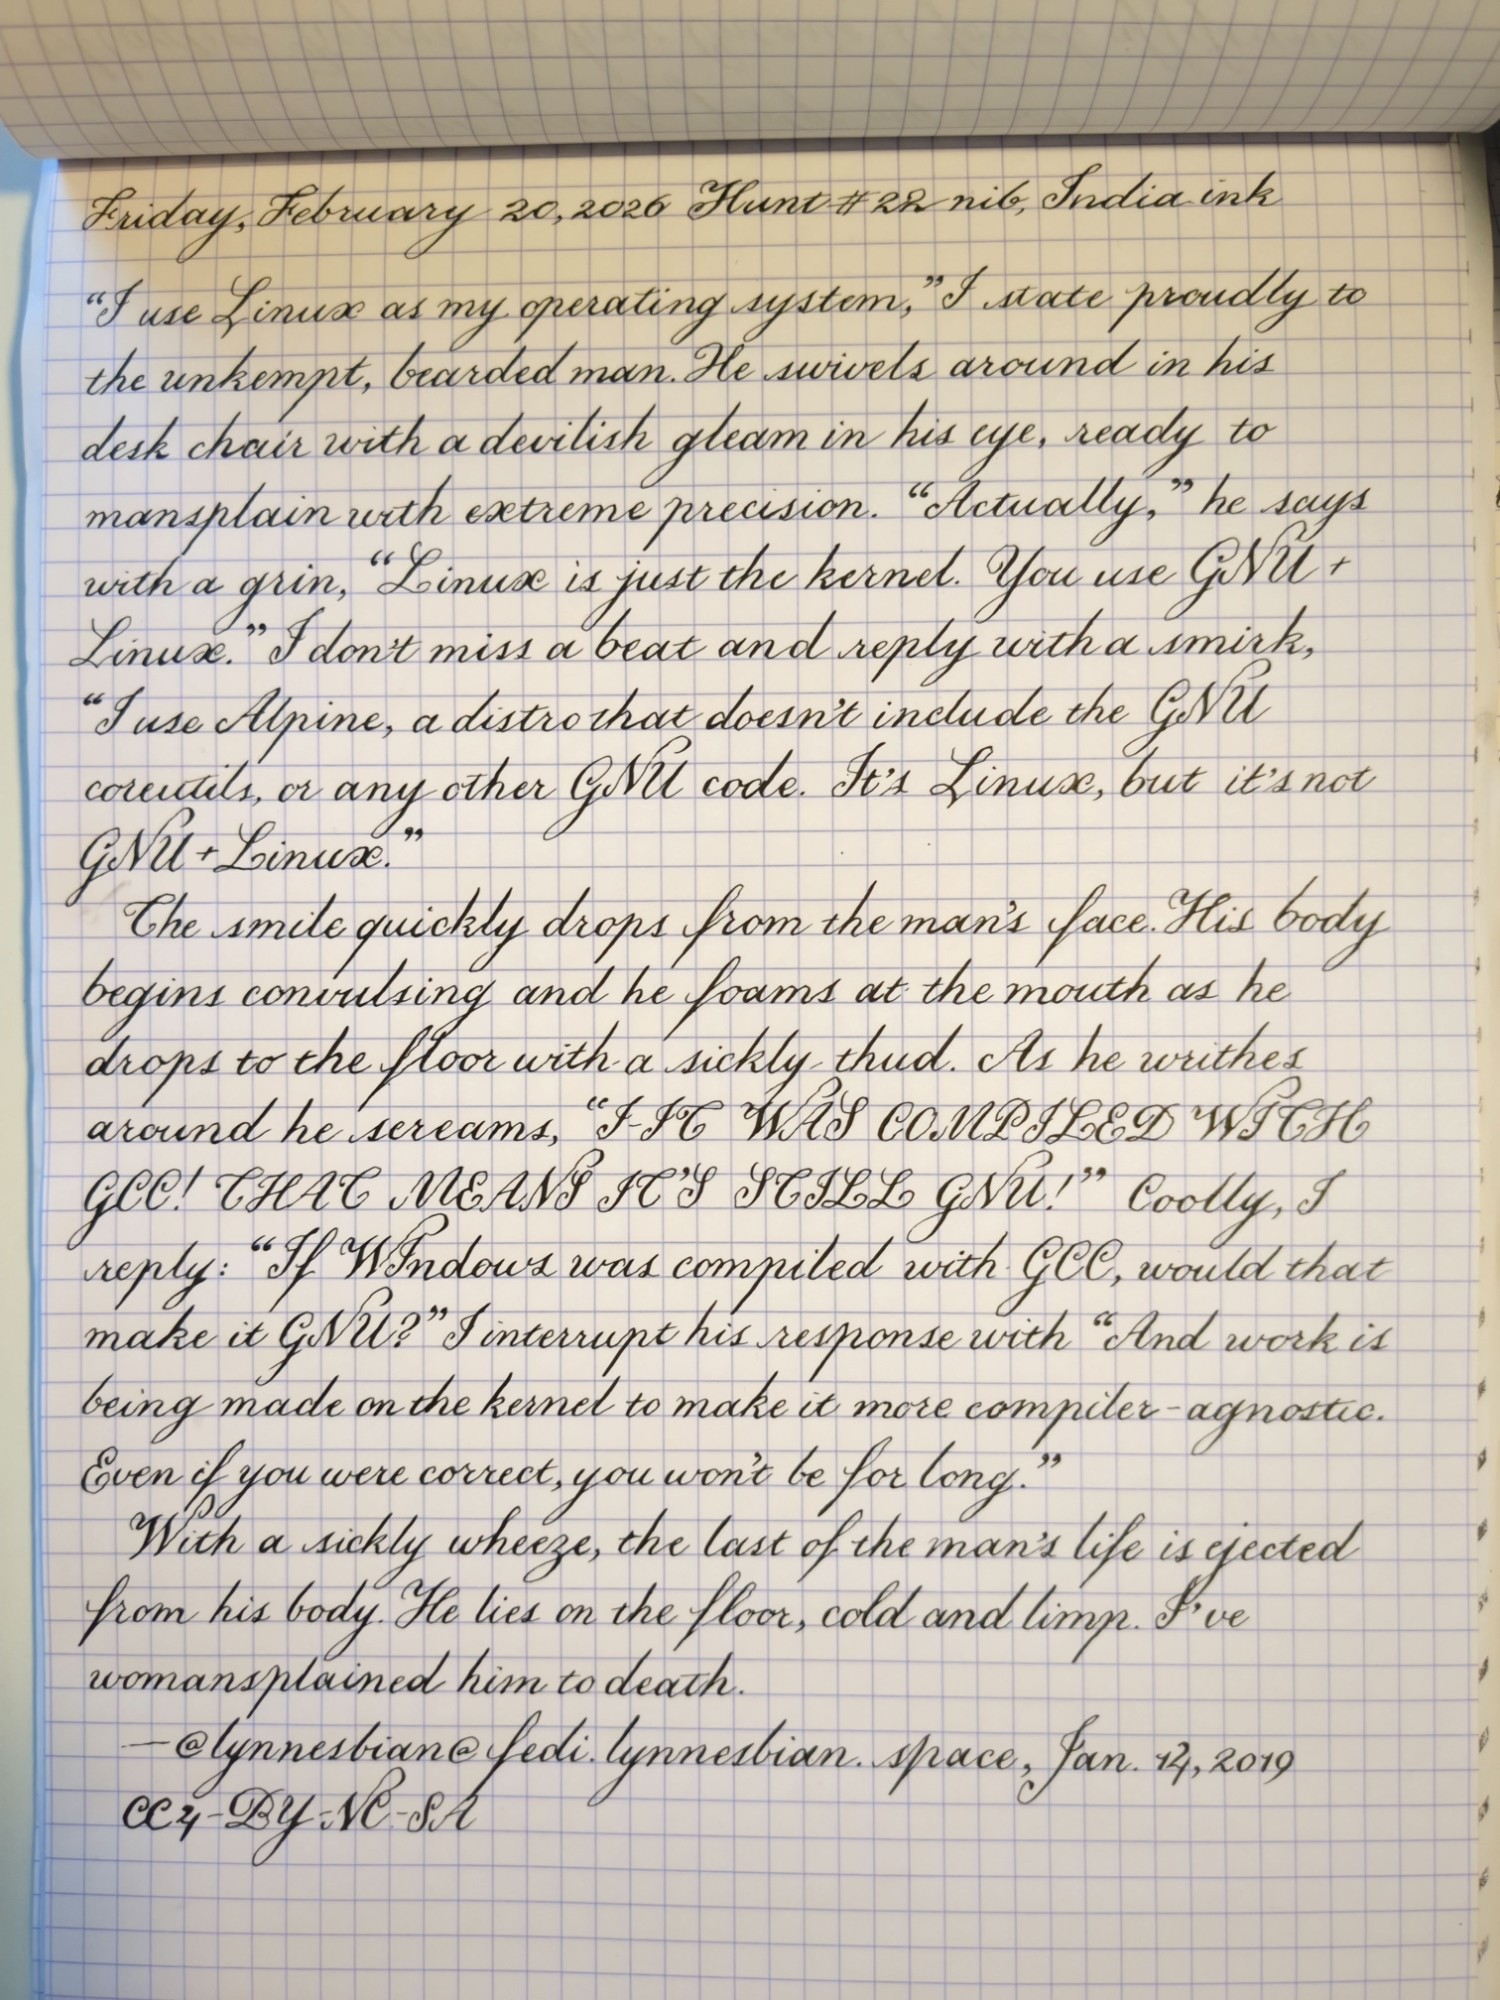 Friday, February 20, 2026 Hunt #22 nib, India ink
“I use Linux as my operating system,” I state proudly to
the unkempt, bearded man. He swivels around in his
desk chair with a devilish gleam in his eye, ready to
mansplain with extreme precision. “Actually,” he says
with a grin, “Linux is just the kernel. You use GNU+
Linux.” I don't miss a beat and reply with a smirk,
“I use Alpine, a distro that doesn't include the GNU
coreutils, or any other GNU code. It's Linux, but it's not
GNU+Linux.”
The smile quickly drops from the man's face. His body
begins convulsing and he foams at the mouth as he
drops to the floor with a sickly thud. As he writhes
around he screams, “I-IT WAS COMPILED WITH
GCC! THAT MEANS IT'S STILL GNU!” Coolly, I
reply: “If WIndows was compiled with GCC, would that
make it GNU?” I interrupt his response with “And work is
being made on the kernel to make it more compiler-agnostic.
Even if you were correct, you won't be for long.”
With a sickly wheeze, the last of the man's life is ejected
from his body. He lies on the floor, cold and limp. I've
womansplained him to death.
—@lynnesbian@fedi.lynnesbian.space, Jan. 14, 2019
CC4-BY-NC-SA